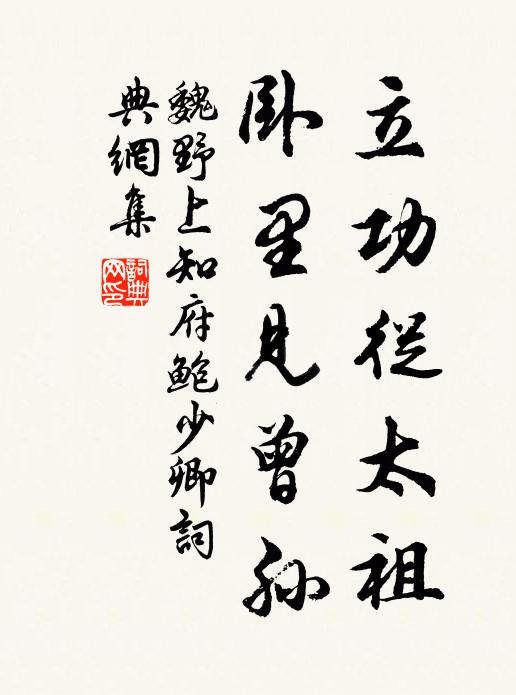 立功從太祖
卧里見曾孫
魏野上知府鮑少卿詞
典網集
詞典網印